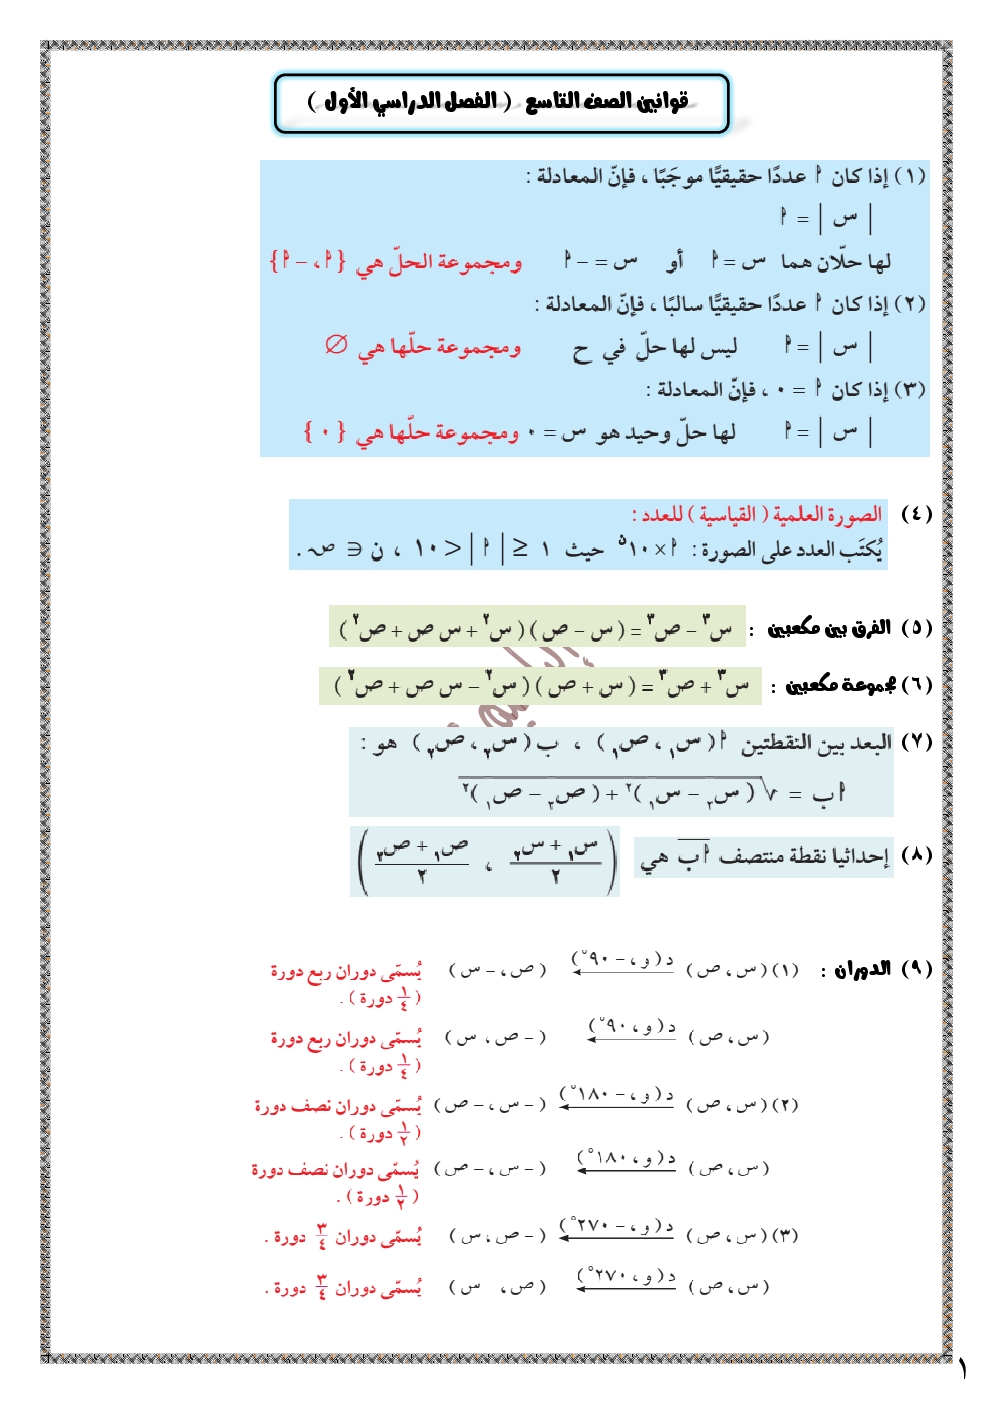 قوانين الصف التاسع ( الفصل الدراسي الأول )
(١) إذا كان ٲ عددًا حقيقيًّا موجَبًا ، فإنّ المعادلة :
| س | = ٲ
لها حلّان هما س = ٲ أو س = – ٲ ومجموعة الحلّ هي { ٲ ، – ٲ }
(٢) إذا كان ٲ عددًا حقيقيًّا سالبًا ، فإنّ المعادلة :
| س | = ٲ ليس لها حلّ في ح ومجموعة حلّها هي ∅
(٣) إذا كان ٲ = ٠ ، فإنّ المعادلة :
| س | = ٲ لها حلّ وحيد هو س = ٠ ومجموعة حلّها هي { ٠ }
(٤) الصورة العلمية ( القياسية ) للعدد :
يُكتَب العدد على الصورة : ٲ × ١٠ ن حيث ١ ≤ | ٲ | < ١٠ ، ن ∈ صـ .
(٥) الفرق بين مكعبين : س٣ – ص٣ = ( س – ص ) ( س٢ + س ص + ص٢ )
(٦) مجموعة مكعبين : س٣ + ص٣ = ( س + ص ) ( س٢ – س ص + ص٢ )
(٧) البعد بين النقطتين ٲ ( س١ ، ص١ ) ، ب ( س٢ ، ص٢ ) هو :
ٲ ب = √( س٢ – س١ )٢ + ( ص٢ – ص١ )٢
(٨) إحداثيا نقطة منتصف ٲب هي ( س١ + س٢ / ٢ ، ص١ + ص٢ / ٢ )
(٩) الدوران : (١) ( س ، ص ) د ( و ، – ٩٠° ) ( ص ، – س ) يُسمّى دوران ربع دورة
( ١/٤ دورة ) .
( س ، ص ) د ( و ، ٩٠° ) ( – ص ، س ) يُسمّى دوران ربع دورة
( ١/٤ دورة ) .
(٢) ( س ، ص ) د ( و ، – ١٨٠° ) ( – س ، – ص ) يُسمّى دوران نصف دورة
( ١/٢ دورة ) .
( س ، ص ) د ( و ، ١٨٠° ) ( – س ، – ص ) يُسمّى دوران نصف دورة
( ١/٢ دورة ) .
(٣) ( س ، ص ) د ( و ، – ٢٧٠° ) ( – ص ، س ) يُسمّى دوران ٣/٤ دورة .
( س ، ص ) د ( و ، ٢٧٠° ) ( ص ، س ) يُسمّى دوران ٣/٤ دورة .
١